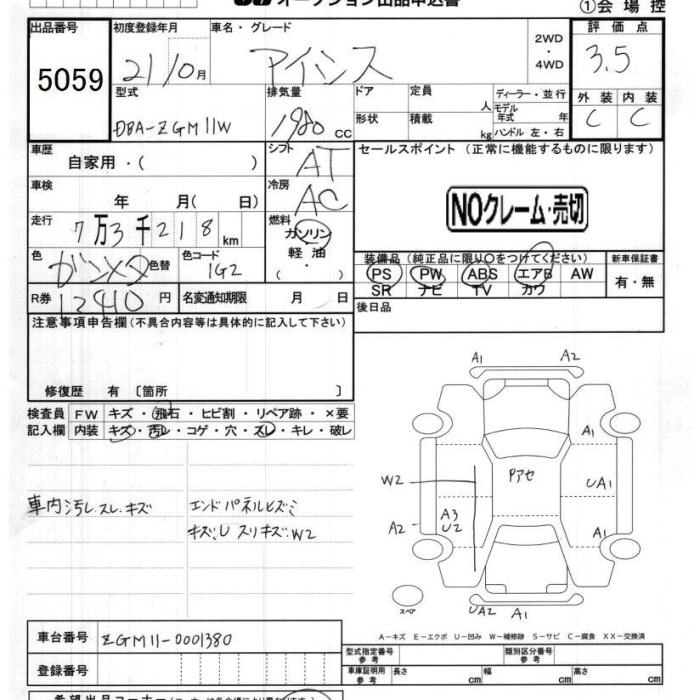 オークション出品申込書
①会場控
出品番号 初度登録年月 車名・グレード 2WD・4WD 評価点
5059 21/10月 アイシス 3.5
型式 排気量 ドア 定員 人 ディーラー・並行 外装 内装
DBA-ZGM11W 1980 CC 形状 積載 kg モデル年式 年 ハンドル 左・右 C C
車歴 シフト セールスポイント (正常に機能するものに限ります)
自家用・( ) AT
車検 冷房
年 月( 日) AC NOクレーム・売切
走行 燃料
7万3千218km ガソリン
軽油
・( )
色 色替 色コード 装備品 (純正品に限り○をつけてください) 新車保証書
ガンメタ 1G2 PS PW ABS エアB AW 有・無
SR ナビ TV カワ
R券 12410円 名変通知期限 月 日 後日品
注意事項申告欄(不具合内容等は具体的に記入して下さい)
修復歴 有 [箇所 ]
検査員 FW キズ・飛石・ヒビ割・リペア跡・×要
記入欄 内装 キズ・汚レ・コゲ・穴・スレ・キレ・破レ
A1 A2
A1
Pアセ
W2 UA1
車内汚レ.スレ.キズ エンドパネルヒズミ A3
A2 U2 A1
キズ:U スリキズ:W2
スペア UA2 A1
A-キズ E-エクボ U-凹み W-補修跡 S-サビ C-腐食 XX-交換済
車台番号 ZGM11-0001380
型式指定番号 参考 類別区分番号 参考
登録番号 車庫証明用 参考 長さ cm 幅 cm 高さ cm
希望出品コーナー